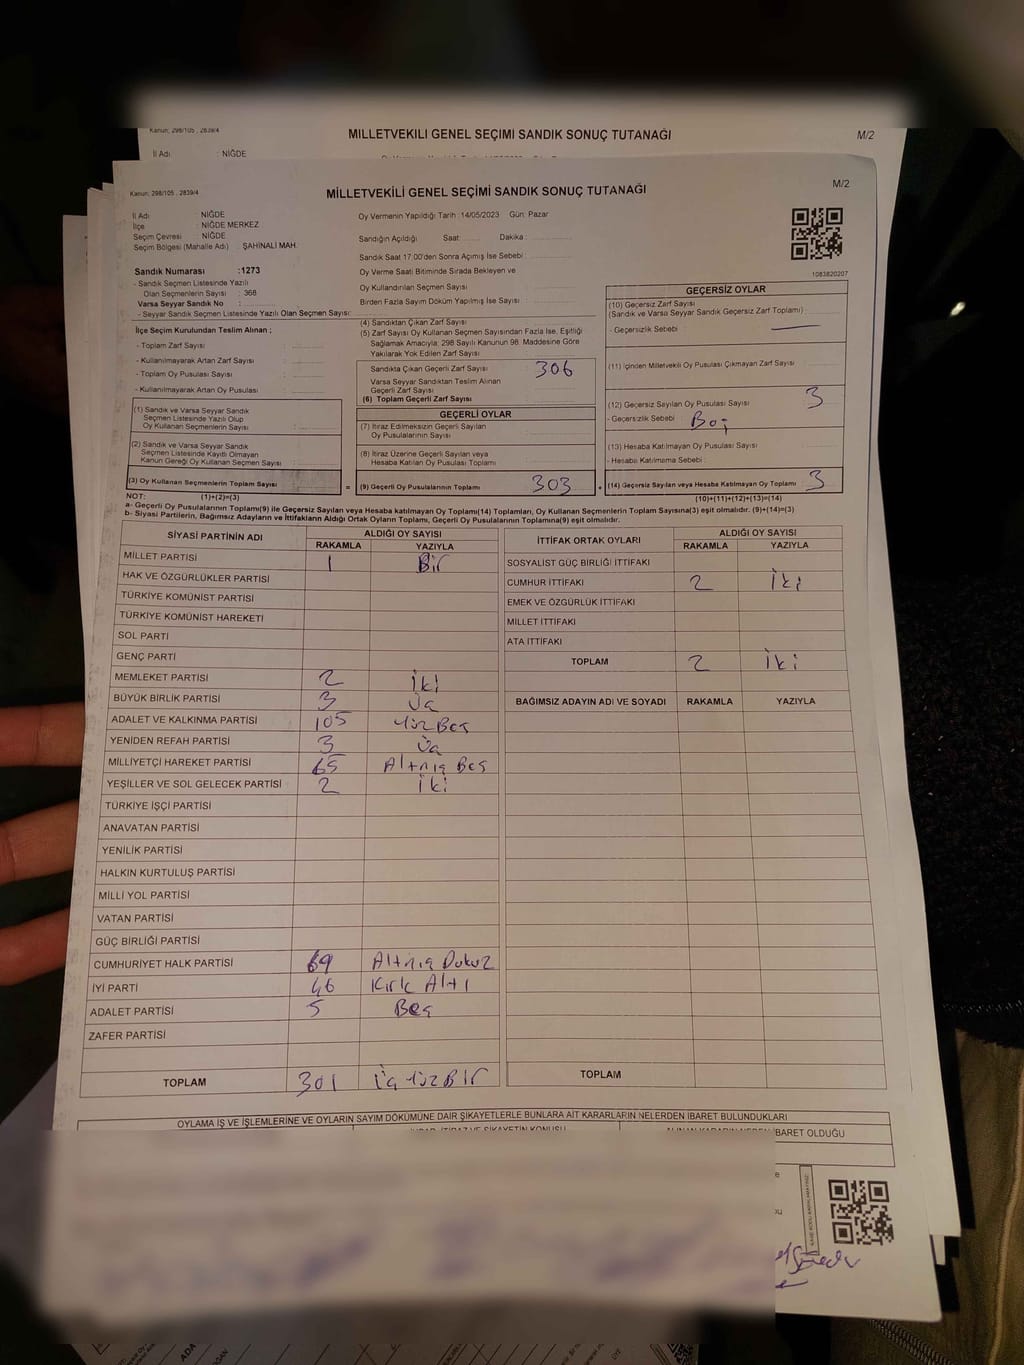 Kanun; 298/105 , 2839/4
MİLLETVEKİLİ GENEL SEÇİMİ SANDIK SONUÇ TUTANAĞI
M/2
İl Adı : NİĞDE
Kanun; 298/105 , 2839/4
MİLLETVEKİLİ GENEL SEÇİMİ SANDIK SONUÇ TUTANAĞI
M/2
İl Adı : NİĞDE
İlçe : NİĞDE MERKEZ
Seçim Çevresi : NİĞDE
Seçim Bölgesi (Mahalle Adı) : ŞAHİNALİ MAH.
Sandık Numarası :1273
- Sandık Seçmen Listesinde Yazılı
Olan Seçmenlerin Sayısı : 368
Varsa Seyyar Sandık No :
- Seyyar Sandık Seçmen Listesinde Yazılı Olan Seçmen Sayısı:
İlçe Seçim Kurulundan Teslim Alınan ;
- Toplam Zarf Sayısı :
- Kullanılmayarak Artan Zarf Sayısı :
- Toplam Oy Pusulası Sayısı :
- Kullanılmayarak Artan Oy Pusulası :
(1) Sandık ve Varsa Seyyar Sandık
Seçmen Listesinde Yazılı Olup
Oy Kullanan Seçmenlerin Sayısı :
(2) Sandık ve Varsa Seyyar Sandık
Seçmen Listesinde Kayıtlı Olmayan
Kanun Gereği Oy Kullanan Seçmen Sayısı :
(3) Oy Kullanan Seçmenlerin Toplam Sayısı
Oy Vermenin Yapıldığı Tarih :14/05/2023 Gün: Pazar
Sandığın Açıldığı Saat: Dakika :
Sandık Saat 17.00'den Sonra Açılmış İse Sebebi :
Oy Verme Saati Bitiminde Sırada Bekleyen ve
Oy Kullandırılan Seçmen Sayısı
Birden Fazla Sayım Döküm Yapılmış İse Sayısı
(4) Sandıktan Çıkan Zarf Sayısı
(5) Zarf Sayısı Oy Kullanan Seçmen Sayısından Fazla İse, Eşitliği
Sağlamak Amacıyla; 298 Sayılı Kanunun 98. Maddesine Göre
Yakılarak Yok Edilen Zarf Sayısı
Sandıkta Çıkan Geçerli Zarf Sayısı : 306
Varsa Seyyar Sandıktan Teslim Alınan
Geçerli Zarf Sayısı
(6) Toplam Geçerli Zarf Sayısı :
GEÇERLİ OYLAR
(7) İtiraz Edilmeksizin Geçerli Sayılan
Oy Pusulalarının Sayısı
(8) İtiraz Üzerine Geçerli Sayılan veya
Hesaba Katılan Oy Pusulası Toplamı
= (9) Geçerli Oy Pusulalarının Toplamı 303
1083820207
GEÇERSİZ OYLAR
(10) Geçersiz Zarf Sayısı
(Sandık ve Varsa Seyyar Sandık Geçersiz Zarf Toplamı) :
- Geçersizlik Sebebi
(11) İçinden Milletvekili Oy Pusulası Çıkmayan Zarf Sayısı
(12) Geçersiz Sayılan Oy Pusulası Sayısı 3
- Geçersizlik Sebebi Boş
(13) Hesaba Katılmayan Oy Pusulası Sayısı
- Hesaba Katılmama Sebebi :
+ (14) Geçersiz Sayılan veya Hesaba Katılmayan Oy Pusulası Toplamı 3
NOT: (1)+(2)=(3) (10)+(11)+(12)+(13)=(14)
a- Geçerli Oy Pusulalarının Toplamı(9) ile Geçersiz Sayılan veya Hesaba katılmayan Oy Pusulası Toplamı(14) Toplamları, Oy Kullanan Seçmenlerin Toplam Sayısına(3) eşit olmalıdır. (9)+(14)=(3)
b- Siyasi Partilerin, Bağımsız Adayların ve İttifakların Aldığı Ortak Oyların Toplamı, Geçerli Oy Pusulalarının Toplamına(9) eşit olmalıdır.
SİYASİ PARTİNİN ADI ALDIĞI OY SAYISI
RAKAMLA YAZIYLA
MİLLET PARTİSİ 1 Bir
HAK VE ÖZGÜRLÜKLER PARTİSİ
TÜRKİYE KOMÜNİST PARTİSİ
TÜRKİYE KOMÜNİST HAREKETİ
SOL PARTİ
GENÇ PARTİ
MEMLEKET PARTİSİ 2 İki
BÜYÜK BİRLİK PARTİSİ 3 Üç
ADALET VE KALKINMA PARTİSİ 105 Yüz Beş
YENİDEN REFAH PARTİSİ 3 Üç
MİLLİYETÇİ HAREKET PARTİSİ 65 Altmış Beş
YEŞİLLER VE SOL GELECEK PARTİSİ 2 İki
TÜRKİYE İŞÇİ PARTİSİ
ANAVATAN PARTİSİ
YENİLİK PARTİSİ
HALKIN KURTULUŞ PARTİSİ
MİLLİ YOL PARTİSİ
VATAN PARTİSİ
GÜÇ BİRLİĞİ PARTİSİ
CUMHURİYET HALK PARTİSİ 69 Altmış Dokuz
İYİ PARTİ 46 Kırk Altı
ADALET PARTİSİ 5 Beş
ZAFER PARTİSİ
TOPLAM 301 Üç Yüz Bir
İTTİFAK ORTAK OYLARI ALDIĞI OY SAYISI
RAKAMLA YAZIYLA
SOSYALİST GÜÇ BİRLİĞİ İTTİFAKI
CUMHUR İTTİFAKI 2 İki
EMEK VE ÖZGÜRLÜK İTTİFAKI
MİLLET İTTİFAKI
ATA İTTİFAKI
TOPLAM 2 İki
BAĞIMSIZ ADAYIN ADI VE SOYADI RAKAMLA YAZIYLA
TOPLAM
OYLAMA İŞ VE İŞLEMLERİNE VE OYLARIN SAYIM DÖKÜMÜNE DAİR ŞİKAYETLERLE BUNLARA AİT KARARLARIN NELERDEN İBARET BULUNDUKLARI
İBARET OLDUĞU